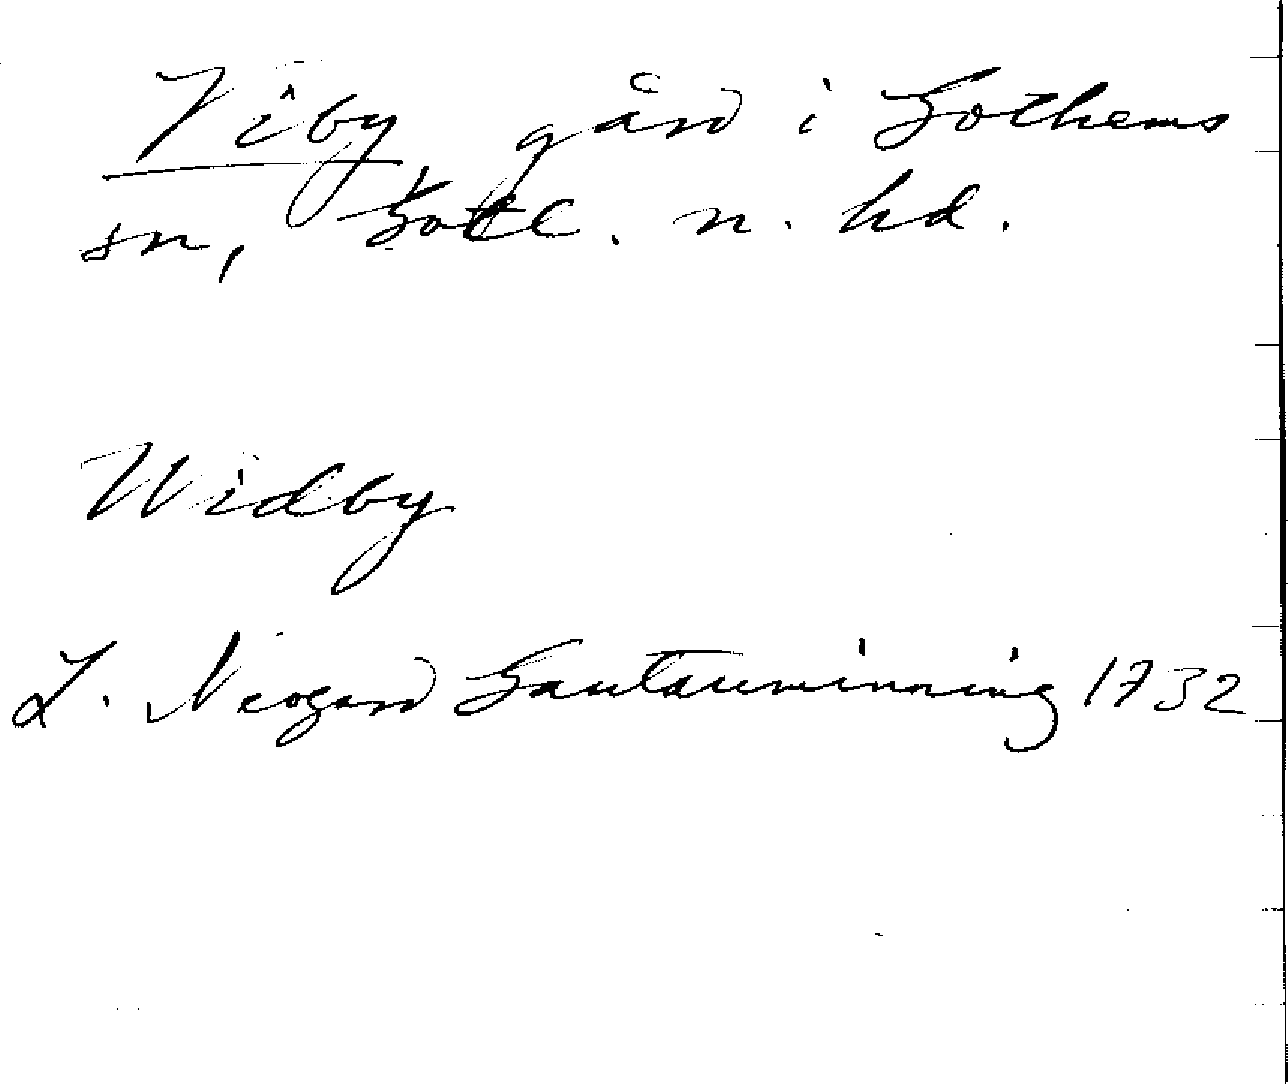 Viby, gård i Gothems
sn, Gotl. n. hd.
Widby
L. Neogard Gautauminning 1732